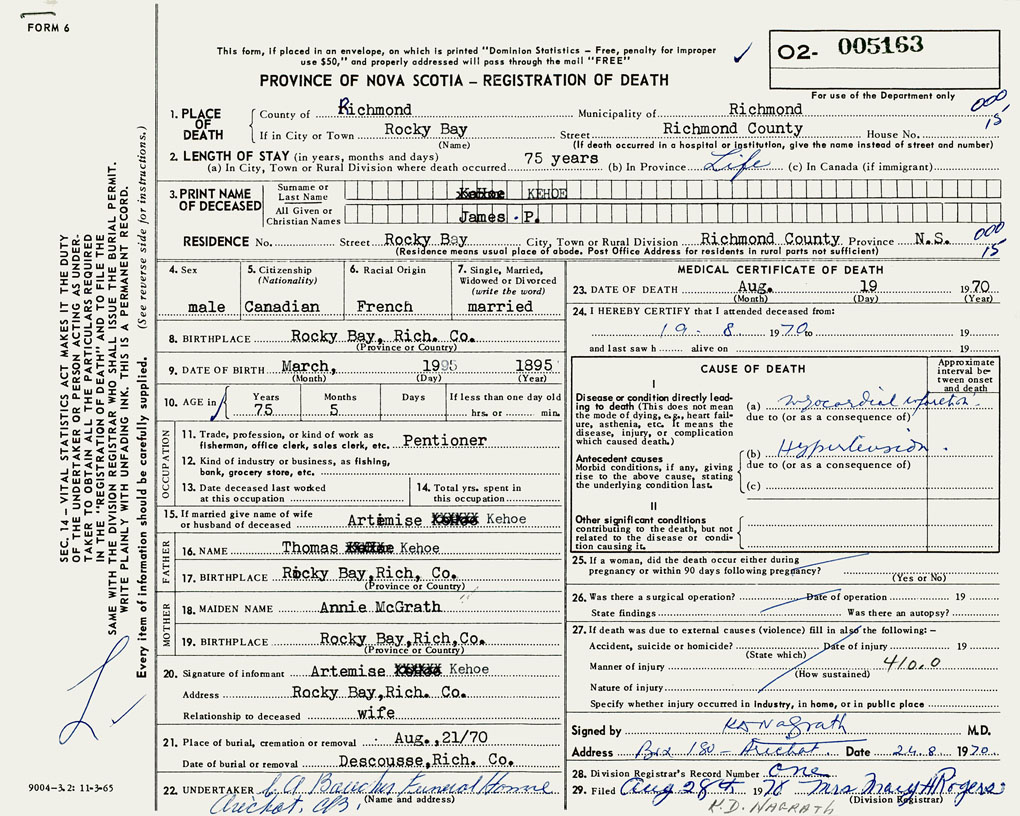 FORM 6
This form, if placed in an envelope, on which is printed "Dominion Statistics – Free, penalty for improper
use $50," and properly addressed will pass through the mail "FREE"
PROVINCE OF NOVA SCOTIA – REGISTRATION OF DEATH
O2- 005163
For use of the Department only
000
15
1. PLACE OF DEATH
County of Richmond Municipality of Richmond
If in City or Town Rocky Bay Street Richmond County House No.
(Name) (If death occurred in a hospital or institution, give the name instead of street and number)
2. LENGTH OF STAY (in years, months and days)
(a) In City, Town or Rural Division where death occurred 75 years (b) In Province Life (c) In Canada (if immigrant)
3. PRINT NAME OF DECEASED
Surname or Last Name KeHoe KEHOE
All Given or Christian Names James . P.
RESIDENCE No. Street Rocky Bay City, Town or Rural Division Richmond County Province N.S.
(Residence means usual place of abode. Post Office Address for residents in rural parts not sufficient)
000
15
4. Sex
male
5. Citizenship
(Nationality)
Canadian
6. Racial Origin
French
7. Single, Married,
Widowed or Divorced
(write the word)
married
8. BIRTHPLACE Rocky Bay, Rich. Co.
(Province or Country)
9. DATE OF BIRTH March, 1995 1895
(Month) (Day) (Year)
10. AGE in
Years Months Days If less than one day old
75 5 hrs. or min.
OCCUPATION
11. Trade, profession, or kind of work as
fisherman, office clerk, sales clerk, etc. Pentioner
12. Kind of industry or business, as fishing,
bank, grocery store, etc.
13. Date deceased last worked
at this occupation
14. Total yrs. spent in
this occupation
15. If married give name of wife
or husband of deceased Artemise XXXXXX Kehoe
FATHER
16. NAME Thomas Kehoe
17. BIRTHPLACE Rocky Bay, Rich, Co.
(Province or Country)
MOTHER
18. MAIDEN NAME Annie McGrath
19. BIRTHPLACE Rocky Bay,Rich,Co.
(Province or Country)
20. Signature of informant Artemise XXXXXX Kehoe
Address Rocky Bay,Rich. Co.
Relationship to deceased wife
21. Place of burial, cremation or removal Aug.,21/70
Date of burial or removal Descousse,Rich. Co.
22. UNDERTAKER C A Boucher Funeral Home
(Name and address)
Arichat, CB.
MEDICAL CERTIFICATE OF DEATH
23. DATE OF DEATH Aug. 19 1970
(Month) (Day) (Year)
24. I HEREBY CERTIFY that I attended deceased from:
19 - 8 1970 to 19
and last saw h alive on 19
CAUSE OF DEATH
Approximate interval between onset and death
I
Disease or condition directly leading to death (This does not mean the mode of dying, e.g., heart failure, asthenia, etc. It means the disease, injury, or complication which caused death.)
(a) Myocardial infarction.
due to (or as a consequence of)
Antecedent causes
Morbid conditions, if any, giving rise to the above cause, stating the underlying condition last.
(b) Hypertension.
due to (or as a consequence of)
(c)
II
Other significant conditions
contributing to the death, but not related to the disease or condition causing it.
25. If a woman, did the death occur either during
pregnancy or within 90 days following pregnancy?
(Yes or No)
26. Was there a surgical operation? Date of operation 19
State findings Was there an autopsy?
27. If death was due to external causes (violence) fill in also the following: –
Accident, suicide or homicide? Date of injury 19
(State which)
Manner of injury 410.0
(How sustained)
Nature of injury
Specify whether injury occurred in industry, in home, or in public place
Signed by KD Nagrath M.D.
Address Box 180 - Arichat. Date 24.8 1970.
28. Division Registrar's Record Number One
29. Filed Aug 28th 1970 Mrs Mary H Rogers
(Division Registrar)
K.D. NAGRATH
SEC. 14 – VITAL STATISTICS ACT MAKES IT THE DUTY
OF THE UNDERTAKER OR PERSON ACTING AS UNDER-
TAKER TO OBTAIN ALL THE PARTICULARS REQUIRED
IN THE "REGISTRATION OF DEATH" AND TO FILE THE
SAME WITH THE DIVISION REGISTRAR WHO SHALL ISSUE THE BURIAL PERMIT.
WRITE PLAINLY WITH UNFADING INK. THIS IS A PERMANENT RECORD.
Every item of information should be carefully supplied. (See reverse side for instructions.)
9004-3.2: 11-3-65